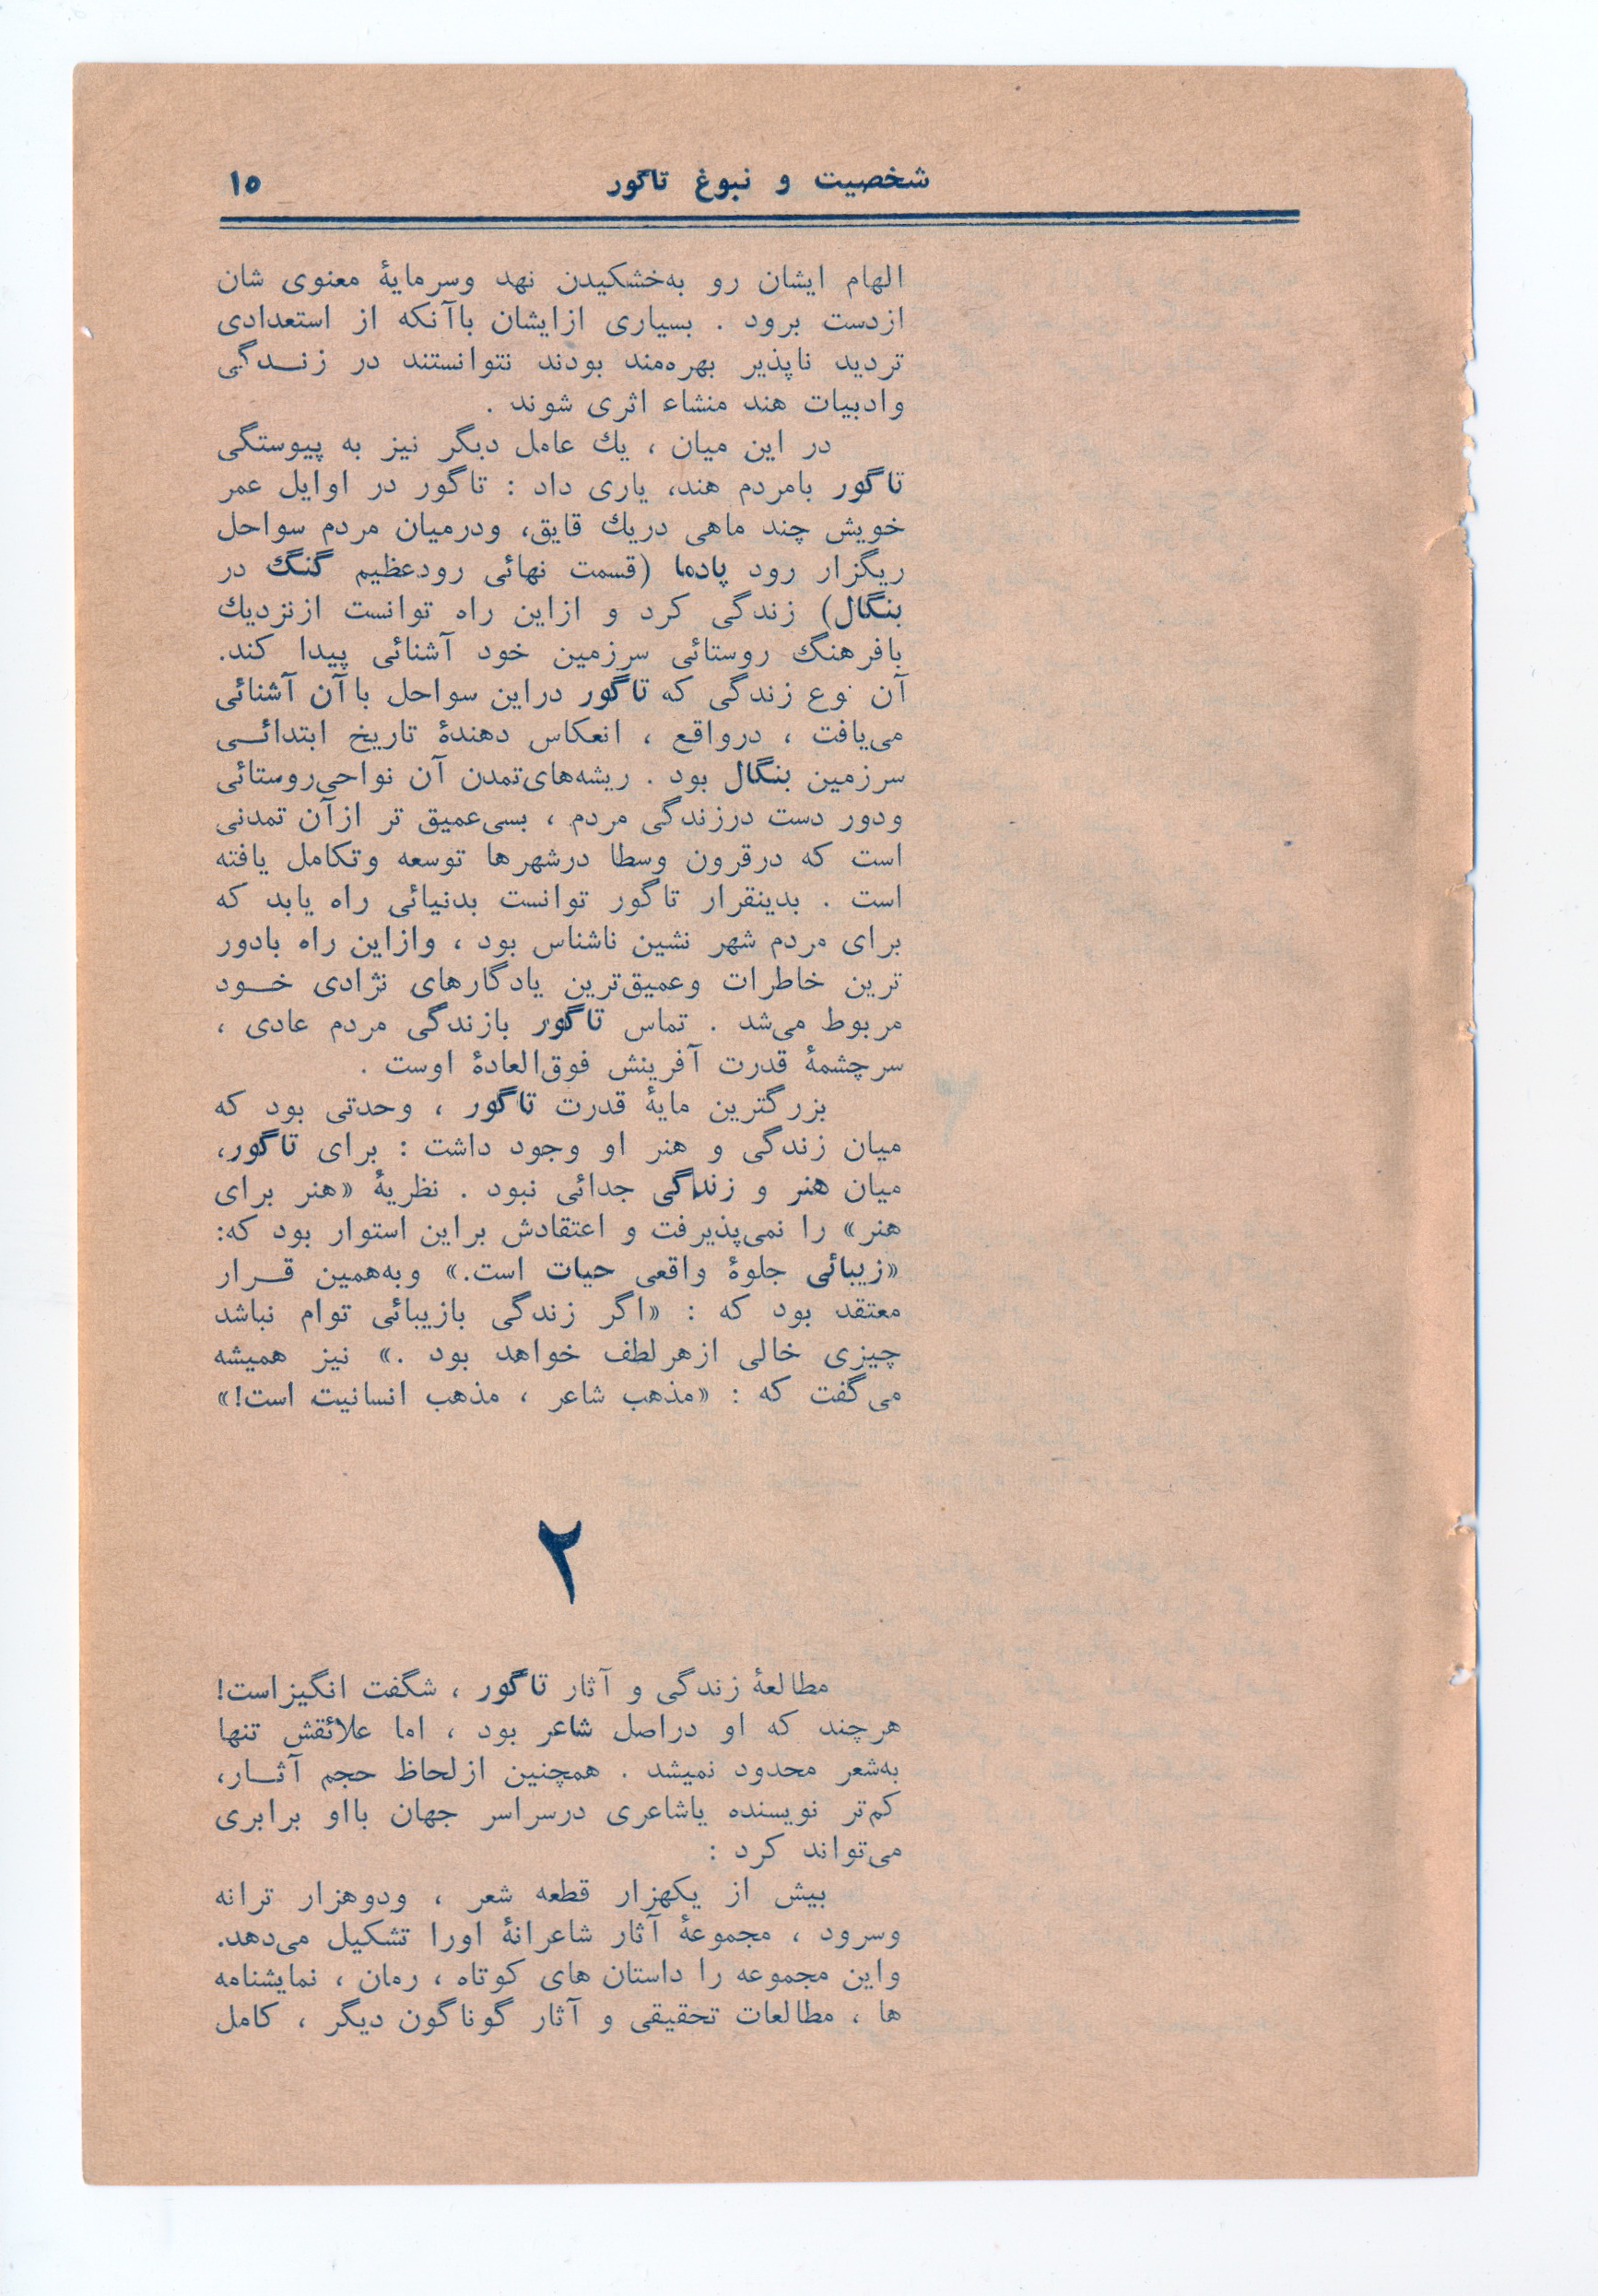 شخصیت و نبوغ تاگور ۱۵
الهام ایشان رو به‌خشکیدن نهد وسرمایهٔ معنوی شان
ازدست برود . بسیاری ازایشان باآنکه از استعدادی
تردید ناپذیر بهره‌مند بودند نتوانستند در زنــدگی
وادبیات هند منشاء اثری شوند .
در این میان ، یك عامل دیگر نیز به پیوستگی
تاگور بامردم هند، یاری داد : تاگور در اوایل عمر
خویش چند ماهی دریك قایق، ودرمیان مردم سواحل
ریگزار رود پادما (قسمت نهائی رودعظیم گنگ در
بنگال) زندگی کرد و ازاین راه توانست ازنزدیك
بافرهنگ روستائی سرزمین خود آشنائی پیدا کند.
آن نوع زندگی که تاگور دراین سواحل باآن آشنائی
می‌یافت ، درواقع ، انعکاس دهندهٔ تاریخ ابتدائــی
سرزمین بنگال بود . ریشه‌های‌تمدن آن نواحی‌روستائی
ودور دست درزندگی مردم ، بسی‌عمیق تر ازآن تمدنی
است که درقرون وسطا درشهرها توسعه وتکامل یافته
است . بدینقرار تاگور توانست بدنیائی راه یابد که
برای مردم شهر نشین ناشناس بود ، وازاین راه بادور
ترین خاطرات وعمیق‌ترین یادگارهای نژادی خــود
مربوط می‌شد . تماس تاگور بازندگی مردم عادی ،
سرچشمهٔ قدرت آفرینش فوق‌العادهٔ اوست .
بزرگترین مایهٔ قدرت تاگور ، وحدتی بود که
میان زندگی و هنر او وجود داشت : برای تاگور،
میان هنر و زندگی جدائی نبود . نظریهٔ «هنر برای
هنر» را نمی‌پذیرفت و اعتقادش براین استوار بود که:
«زیبائی جلوهٔ واقعی حیات است.» وبه‌همین قــرار
معتقد بود که : «اگر زندگی بازیبائی توام نباشد
چیزی خالی ازهرلطف خواهد بود .» نیز همیشه
می‌گفت که : «مذهب شاعر ، مذهب انسانیت است!»
۲
مطالعهٔ زندگی و آثار تاگور ، شگفت انگیزاست!
هرچند که او دراصل شاعر بود ، اما علائقش تنها
به‌شعر محدود نمیشد . همچنین ازلحاظ حجم آثــار،
کم‌تر نویسنده یاشاعری درسراسر جهان بااو برابری
می‌تواند کرد :
بیش از یکهزار قطعه شعر ، ودوهزار ترانه
وسرود ، مجموعهٔ آثار شاعرانهٔ اورا تشکیل می‌دهد.
واین مجموعه را داستان های کوتاه ، رمان ، نمایشنامه
ها ، مطالعات تحقیقی و آثار گوناگون دیگر ، کامل